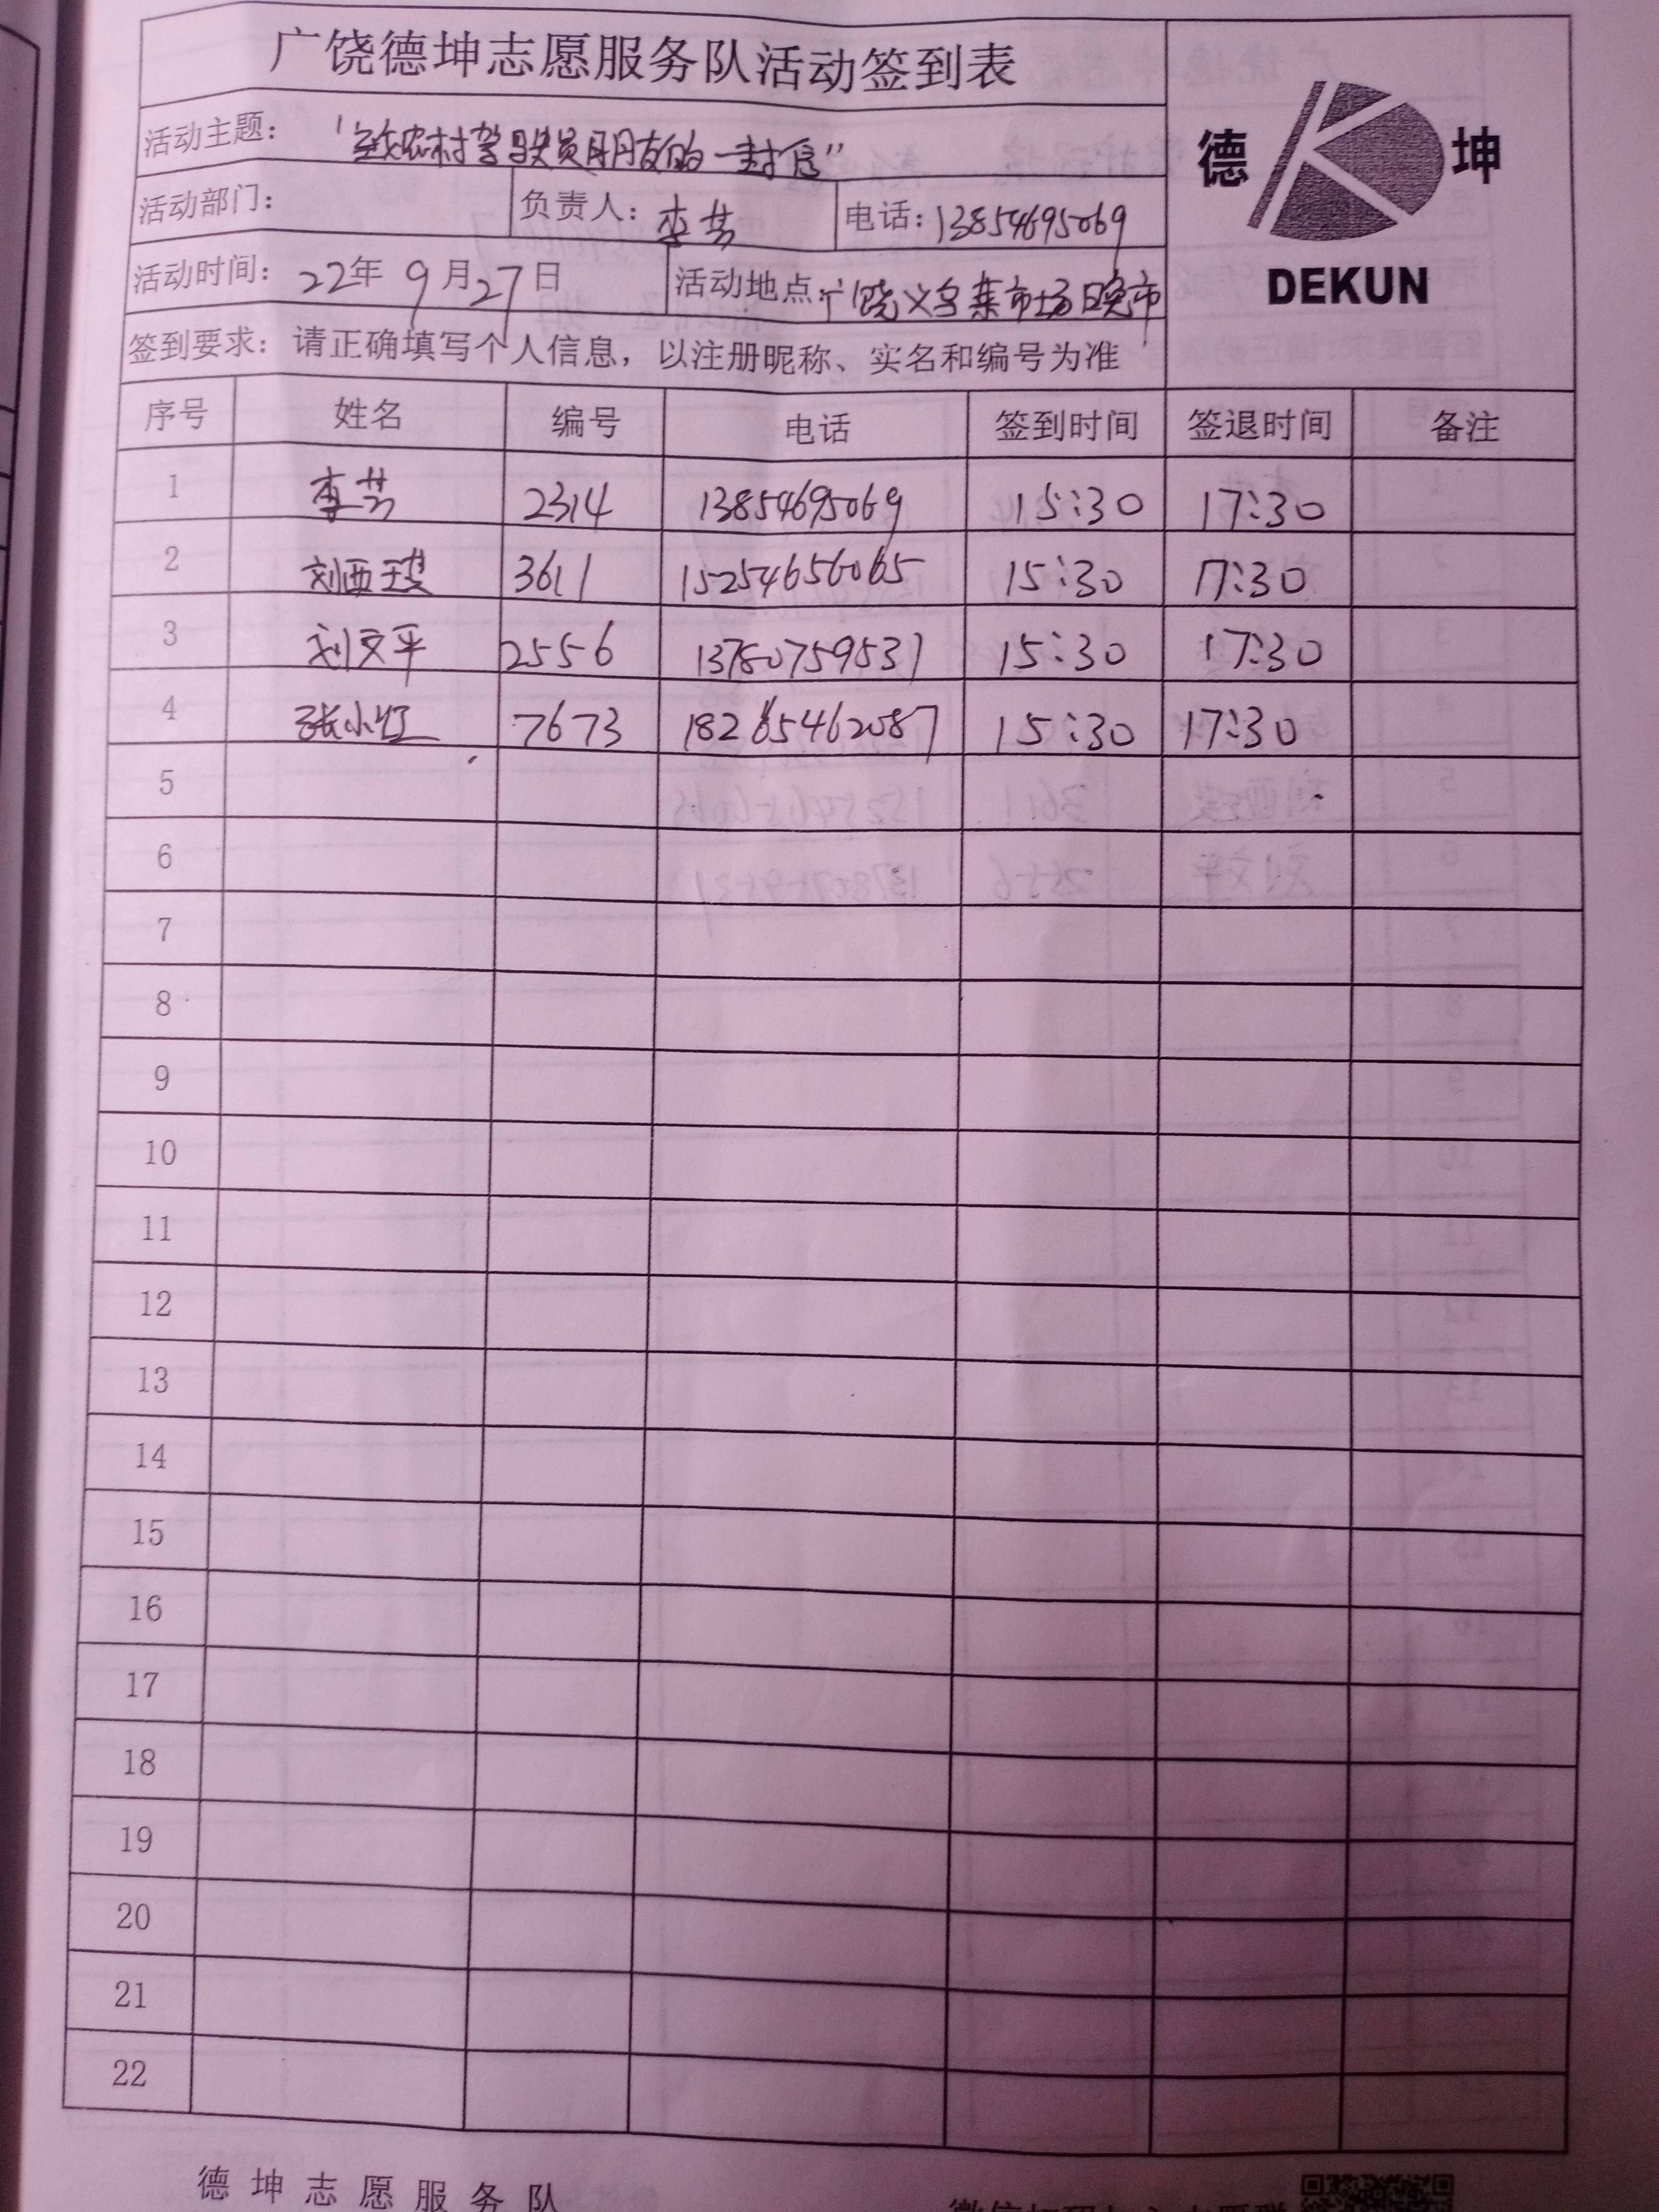 广饶德坤志愿服务队活动签到表
德 坤
DEKUN
活动主题: “致农村驾驶员朋友的一封信”
活动部门: 负责人: 李芸 电话: 13854695069
活动时间: 22年 9月27日 活动地点: 广饶义乌菜市场晚市
签到要求: 请正确填写个人信息，以注册昵称、实名和编号为准
序号 姓名 编号 电话 签到时间 签退时间 备注
1 李芸 2314 13854695069 15:30 17:30
2 刘西 3611 15254656065 15:30 17:30
3 刘文平 2556 13780759531 15:30 17:30
4 张小红 7673 18265462087 15:30 17:30
5
6
7
8
9
10
11
12
13
14
15
16
17
18
19
20
21
22
德坤志愿服务队